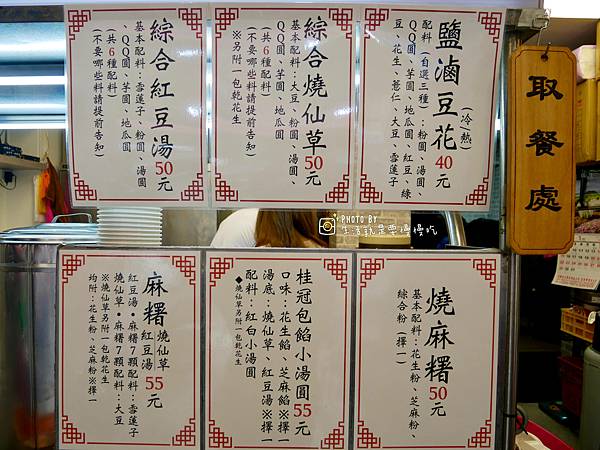 鹽滷豆花40元
(冷熱)
配料(自選三種)：粉圓、湯圓、
QQ圓、芋圓、地瓜圓、紅豆、綠
豆、花生、薏仁、大豆、雪蓮子
綜合燒仙草50元
基本配料：大豆、粉圓、湯圓、
QQ圓、芋圓、地瓜圓
(共6種配料)
(不要哪些料請提前告知)
※另附一包乾花生
綜合紅豆湯50元
基本配料：雪蓮子、粉圓、湯圓
QQ圓、芋圓、地瓜圓
(共6種配料)
(不要哪些料請提前告知)
取餐處
PHOTO BY
生活就是要慢慢吃
燒麻糬50元
基本配料：花生粉、芝麻粉、
綜合粉(擇一)
桂冠包餡小湯圓55元
口味：花生餡、芝麻餡※擇一
湯底：燒仙草、紅豆湯※擇一
配料：紅白小湯圓
◆燒仙草另附一包乾花生
麻糬燒仙草紅豆湯55元
紅豆湯•麻糬7顆配料：雪蓮子
燒仙草•麻糬7顆配料：大豆
※燒仙草另附一包乾花生
均附：花生粉、芝麻粉※擇一